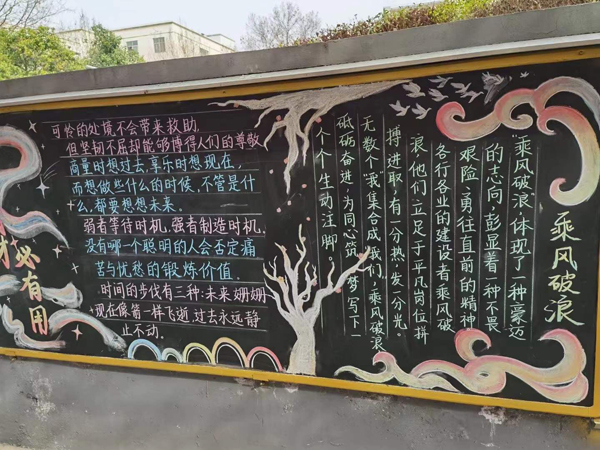 必有用
可怜的处境不会带来救助,
但坚韧不屈却能够博得人们的尊敬
商量时想过去,享乐时想现在,
而想做些什么的时候,不管是什
么,都要想想未来.
弱者等待时机,强者制造时机,
没有哪一个聪明的人会否定痛
苦与忧愁的锻炼价值.
时间的步伐有三种:未来姗姗
现在像箭一样飞逝,过去永远静
止不动.
乘风破浪
“乘风破浪”体现了一种豪迈
的志向,彭显着一种不畏
艰险、勇往直前的精神
各行各业的建设者乘风破
浪,他们立足于平凡岗位拼
搏进取,有一分热,发一分光。
无数个“我”集合成“我们”,乘风破浪
砥砺奋进,为同心筑梦写下一
个个生动注脚。